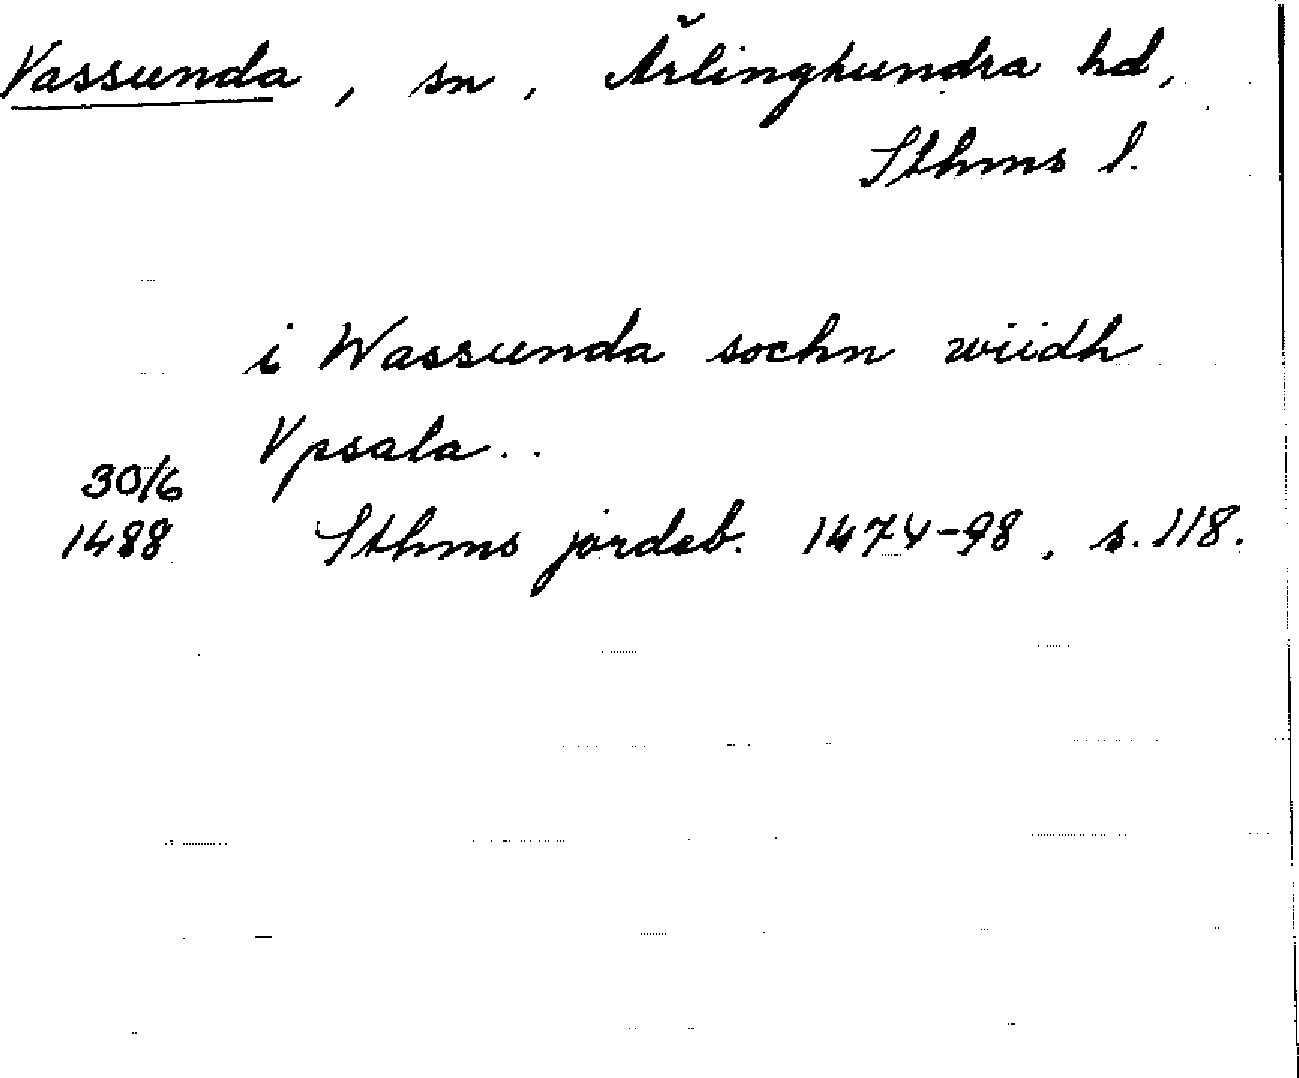 Vassunda, sn, Ärlinghundra hd,
Sthms l.
i Wassunda sochn wiidh
Vpsala..
30/6
1488 Sthms jordeb. 1474-98, s. 118.